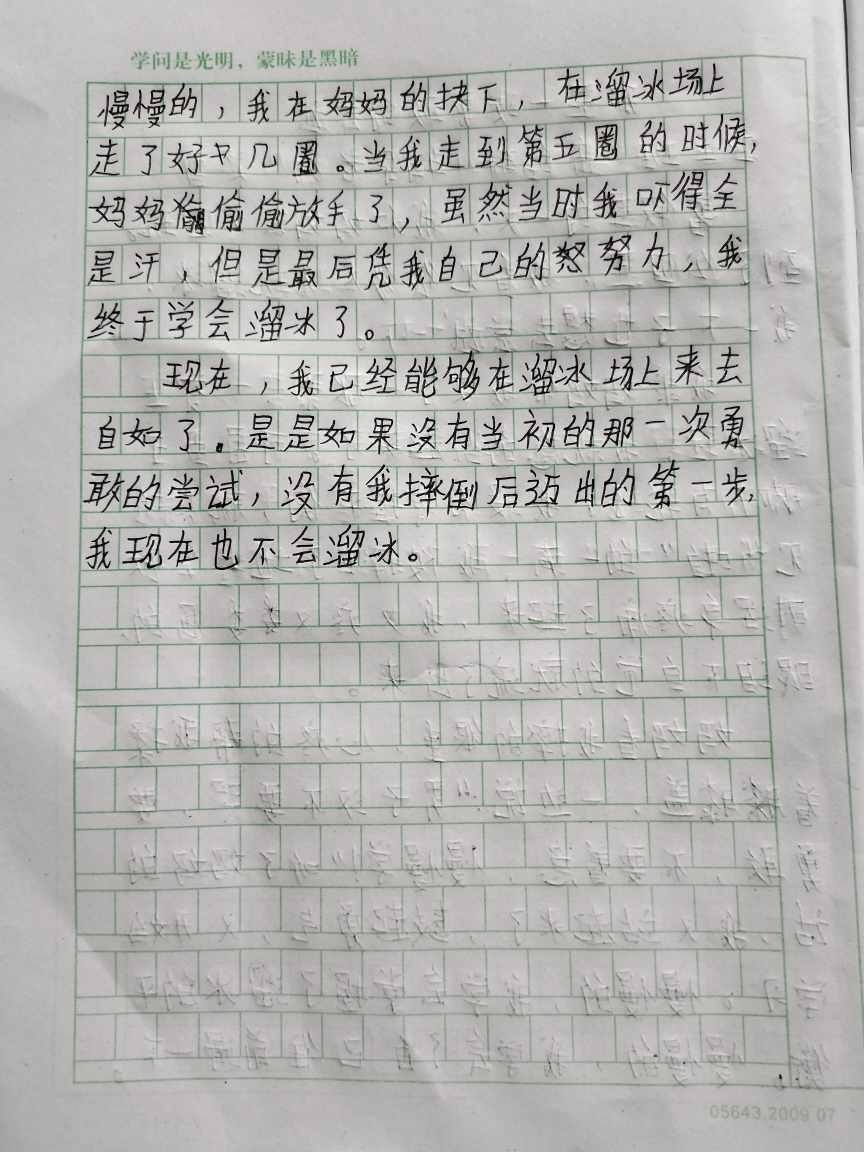 学问是光明，蒙昧是黑暗
慢慢的，我在妈妈的抉下，在溜冰场上
走了好几圈。当我走到第五圈的时候，
妈妈偷偷放手了，虽然当时我吓得全
是汗，但是最后凭我自己的努力，我
终于学会溜冰了。
现在，我已经能够在溜冰场上来去
自如了。是是如果没有当初的那一次勇
敢的尝试，没有我摔倒后迈出的第一步，
我现在也不会溜冰。
05643.2009.07